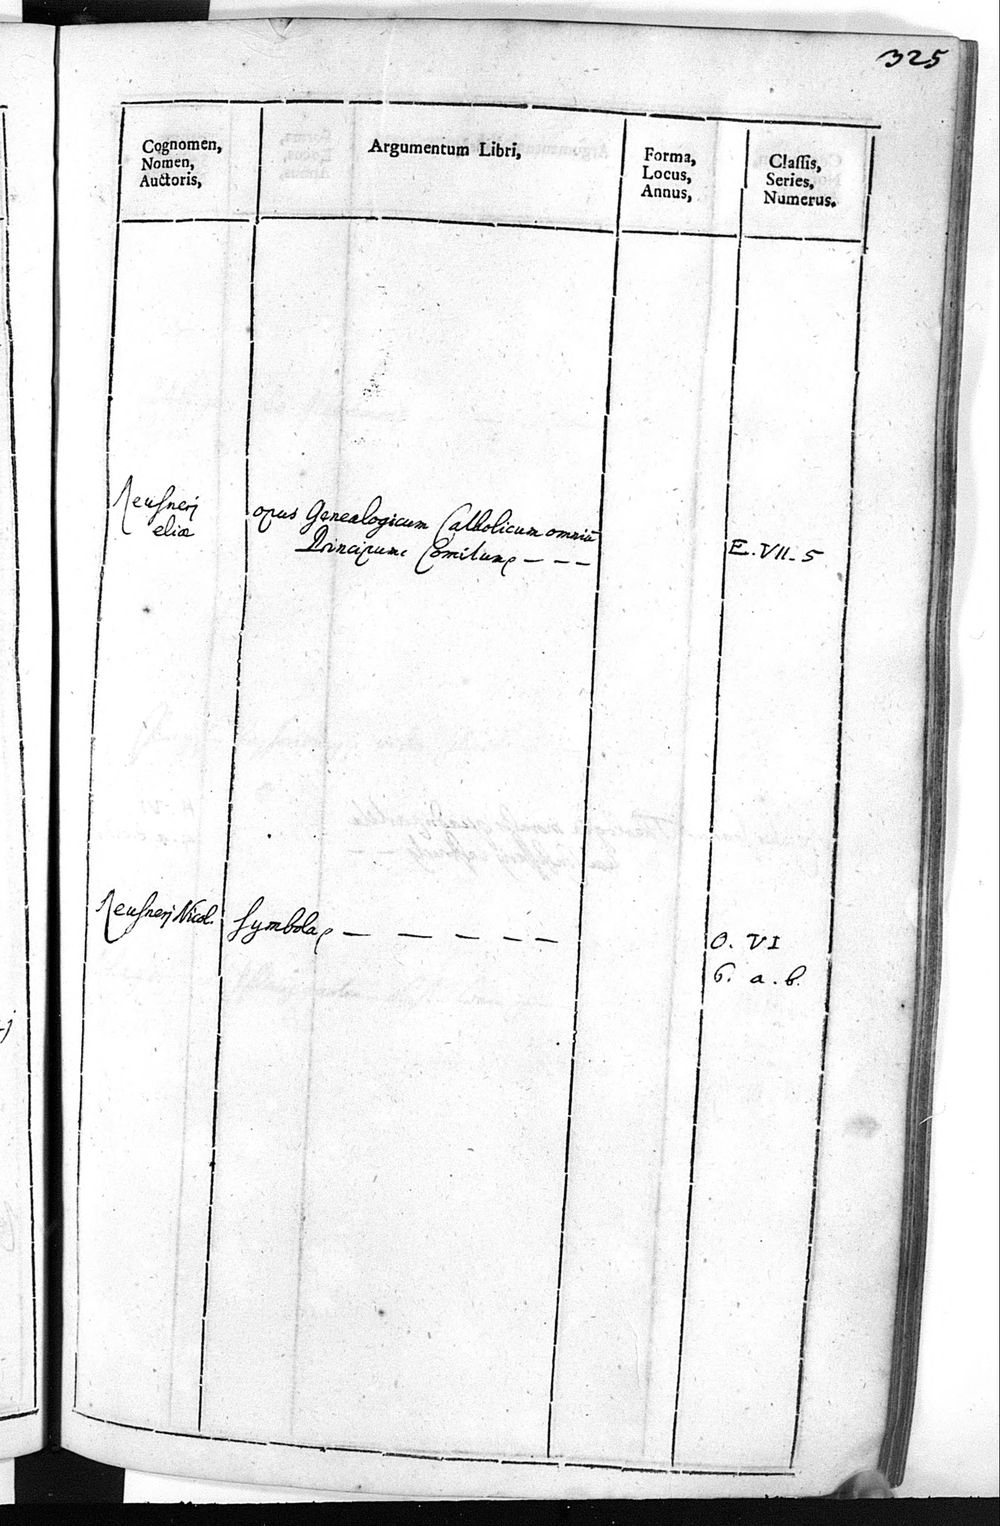 325
Cognomen,
Nomen,
Auctoris,
Argumentum Libri,
Forma,
Locus,
Annus,
Claſſis,
Series,
Numerus.
Reuſnerj
eliæ
opus Genealogicum Catholicum omniū
Principum Comitum — — —
E. VII. 5
Reuſnerj Nicol.
Symbola — — — — —
O. VI
6. a. b.